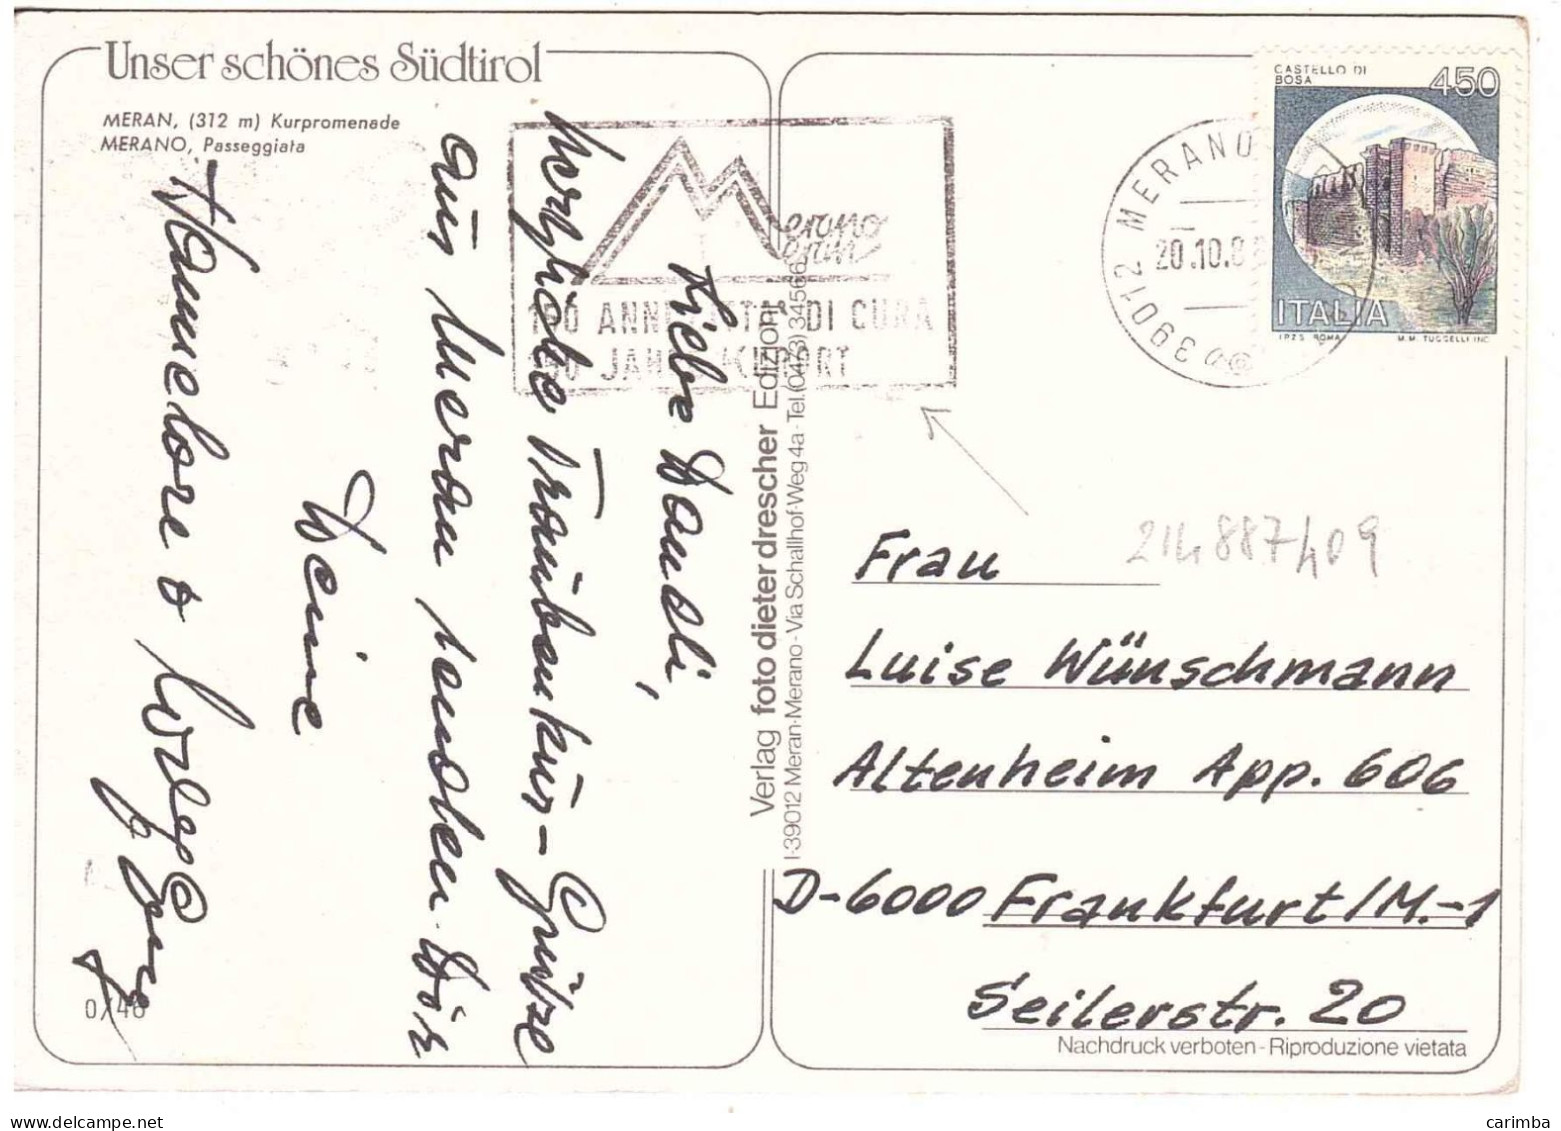 Unser schönes Südtirol
MERAN, (312 m) Kurpromenade
MERANO, Passeggiata
Liebe Dandi,
Herzliche Traubenkur-Grüsze
aus Meran senden Dir
Deine
Hannelore &
0/46
Verlag foto dieter drescher Edizioni
I-39012 Meran-Merano-Via Schallhof-Weg 4a-Tel.(0473) 34566
Merano
Meran
150 ANNI CITTA' DI CURA
150 JAHRE KURORT
39012 MERANO
20.10.8
CASTELLO DI
BOSA
450
ITALIA
I.P.Z.S. ROMA M.M. TUCCELLI INC.
214887409
Frau
Luise Wünschmann
Altenheim App. 606
D-6000 Frankfurt/M.-1
Seilerstr. 20
Nachdruck verboten-Riproduzione vietata
www.delcampe.net
carimba